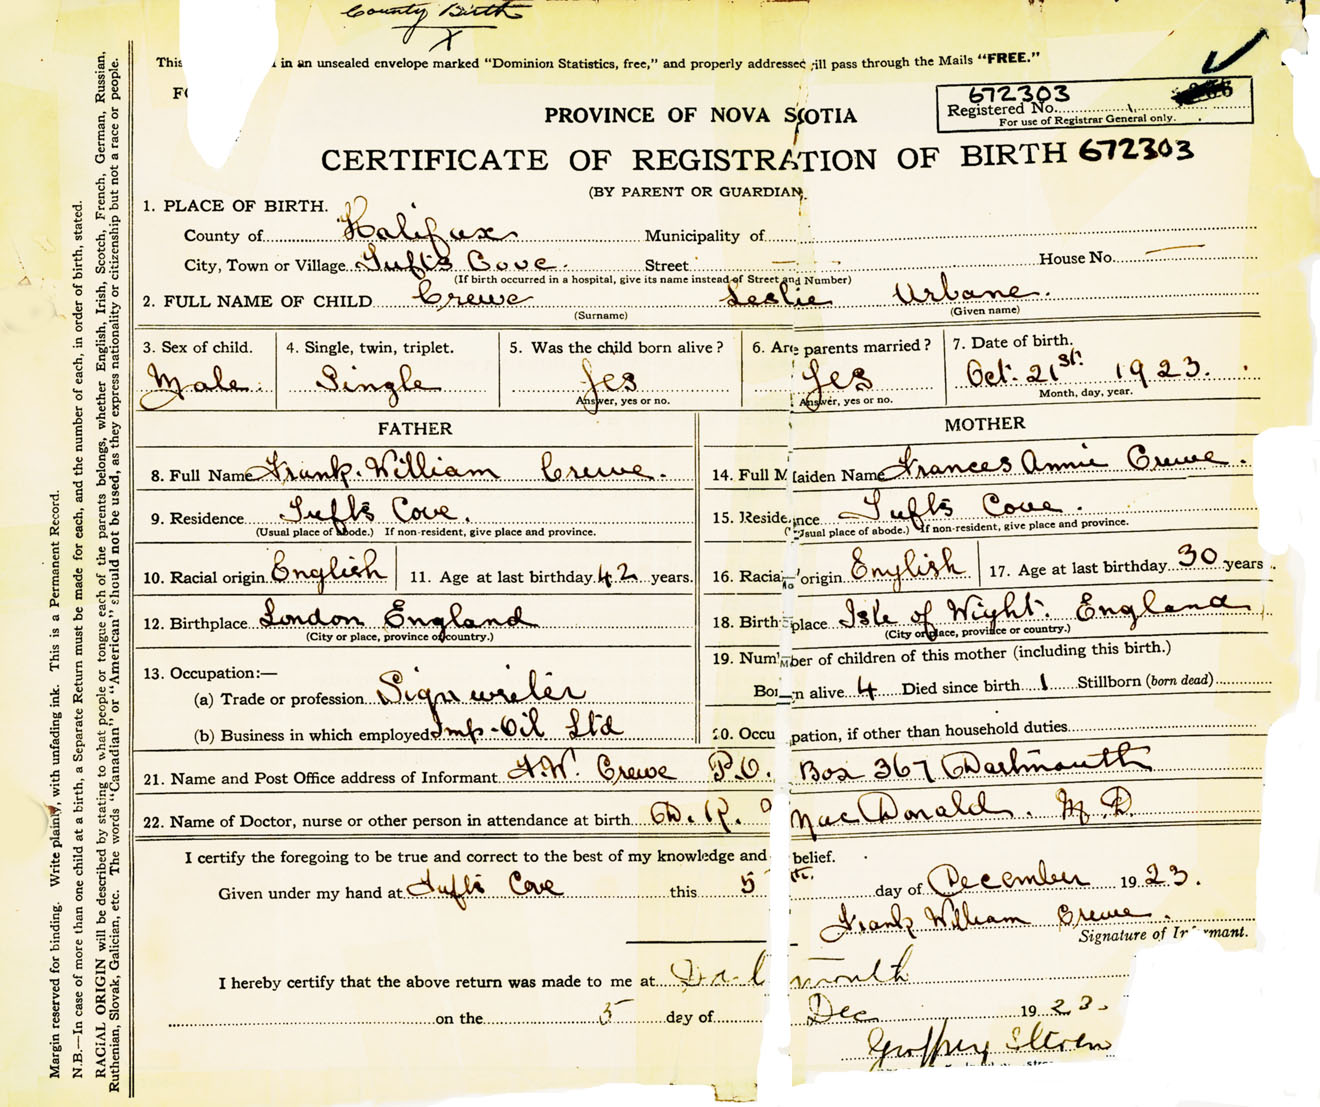 County Birth
X
This in an unsealed envelope marked "Dominion Statistics, free," and properly addressed will pass through the Mails "FREE."
672303
Registered No.
For use of Registrar General only.
PROVINCE OF NOVA SCOTIA
CERTIFICATE OF REGISTRATION OF BIRTH 672303
(BY PARENT OR GUARDIAN.
1. PLACE OF BIRTH.
County of Halifax Municipality of
City, Town or Village Tufts Cove. Street House No.
(If birth occurred in a hospital, give its name instead of Street and Number)
2. FULL NAME OF CHILD Crewe Leslie Urbane.
(Surname) (Given name)
3. Sex of child. 4. Single, twin, triplet. 5. Was the child born alive? 6. Are parents married? 7. Date of birth.
Male. Single Yes Yes Oct. 21st. 1923.
Answer, yes or no. Answer, yes or no. Month, day, year.
FATHER
8. Full Name Frank. William Crewe.
9. Residence Tufts Cove.
(Usual place of abode.) If non-resident, give place and province.
10. Racial origin English 11. Age at last birthday 42 years.
12. Birthplace London England
(City or place, province or country.)
13. Occupation:—
(a) Trade or profession Sign writer
(b) Business in which employed Imp-Oil Ltd
MOTHER
14. Full Maiden Name Frances Annie Crewe.
15. Residence Tufts Cove.
(Usual place of abode.) If non-resident, give place and province.
16. Racial origin English 17. Age at last birthday 30 years.
18. Birthplace Isle of Wight. England
(City or place, province or country.)
19. Number of children of this mother (including this birth.)
Born alive 4 Died since birth 1 Stillborn (born dead)
20. Occupation, if other than household duties
21. Name and Post Office address of Informant F.W. Crewe P.O. Box 367 Dartmouth
22. Name of Doctor, nurse or other person in attendance at birth D. R. MacDonald. M.D
I certify the foregoing to be true and correct to the best of my knowledge and belief.
Given under my hand at Tufts Cove this 5th. day of December 1923.
Frank William Crewe.
Signature of Informant.
I hereby certify that the above return was made to me at Dartmouth
on the 5 day of Dec 1923.
Geoffrey
Margin reserved for binding. Write plainly, with unfading ink. This is a Permanent Record.
N.B.—In case of more than one child at a birth, a Separate Return must be made for each, and the number of each, in order of birth, stated.
RACIAL ORIGIN will be described by stating to what people or tongue each of the parents belongs, whether English, Irish, Scotch, French, German, Russian,
Ruthenian, Slovak, Galician, etc. The words "Canadian" or "American" should not be used, as they express nationality or citizenship but not a race or people.